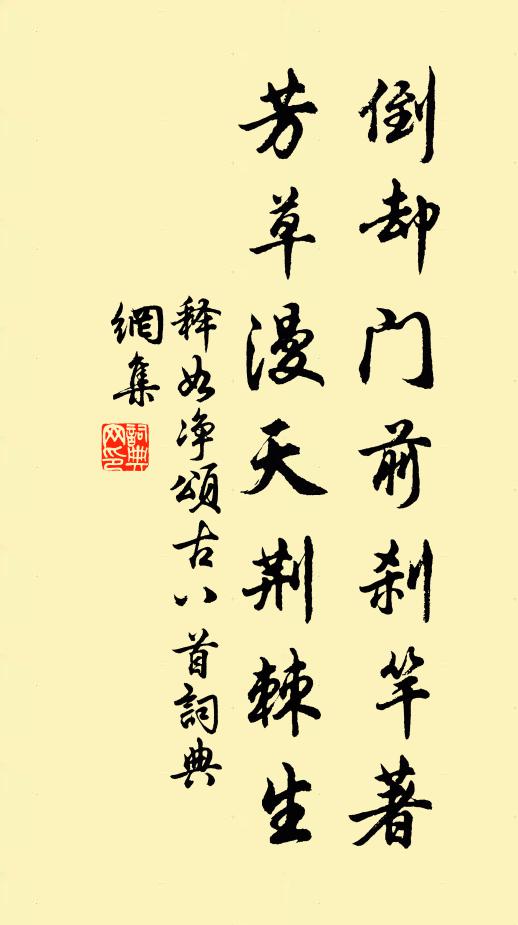 倒却门前刹竿著
芳草漫天荆棘生
释如净頌古八首詞典
網集
詞典
网印